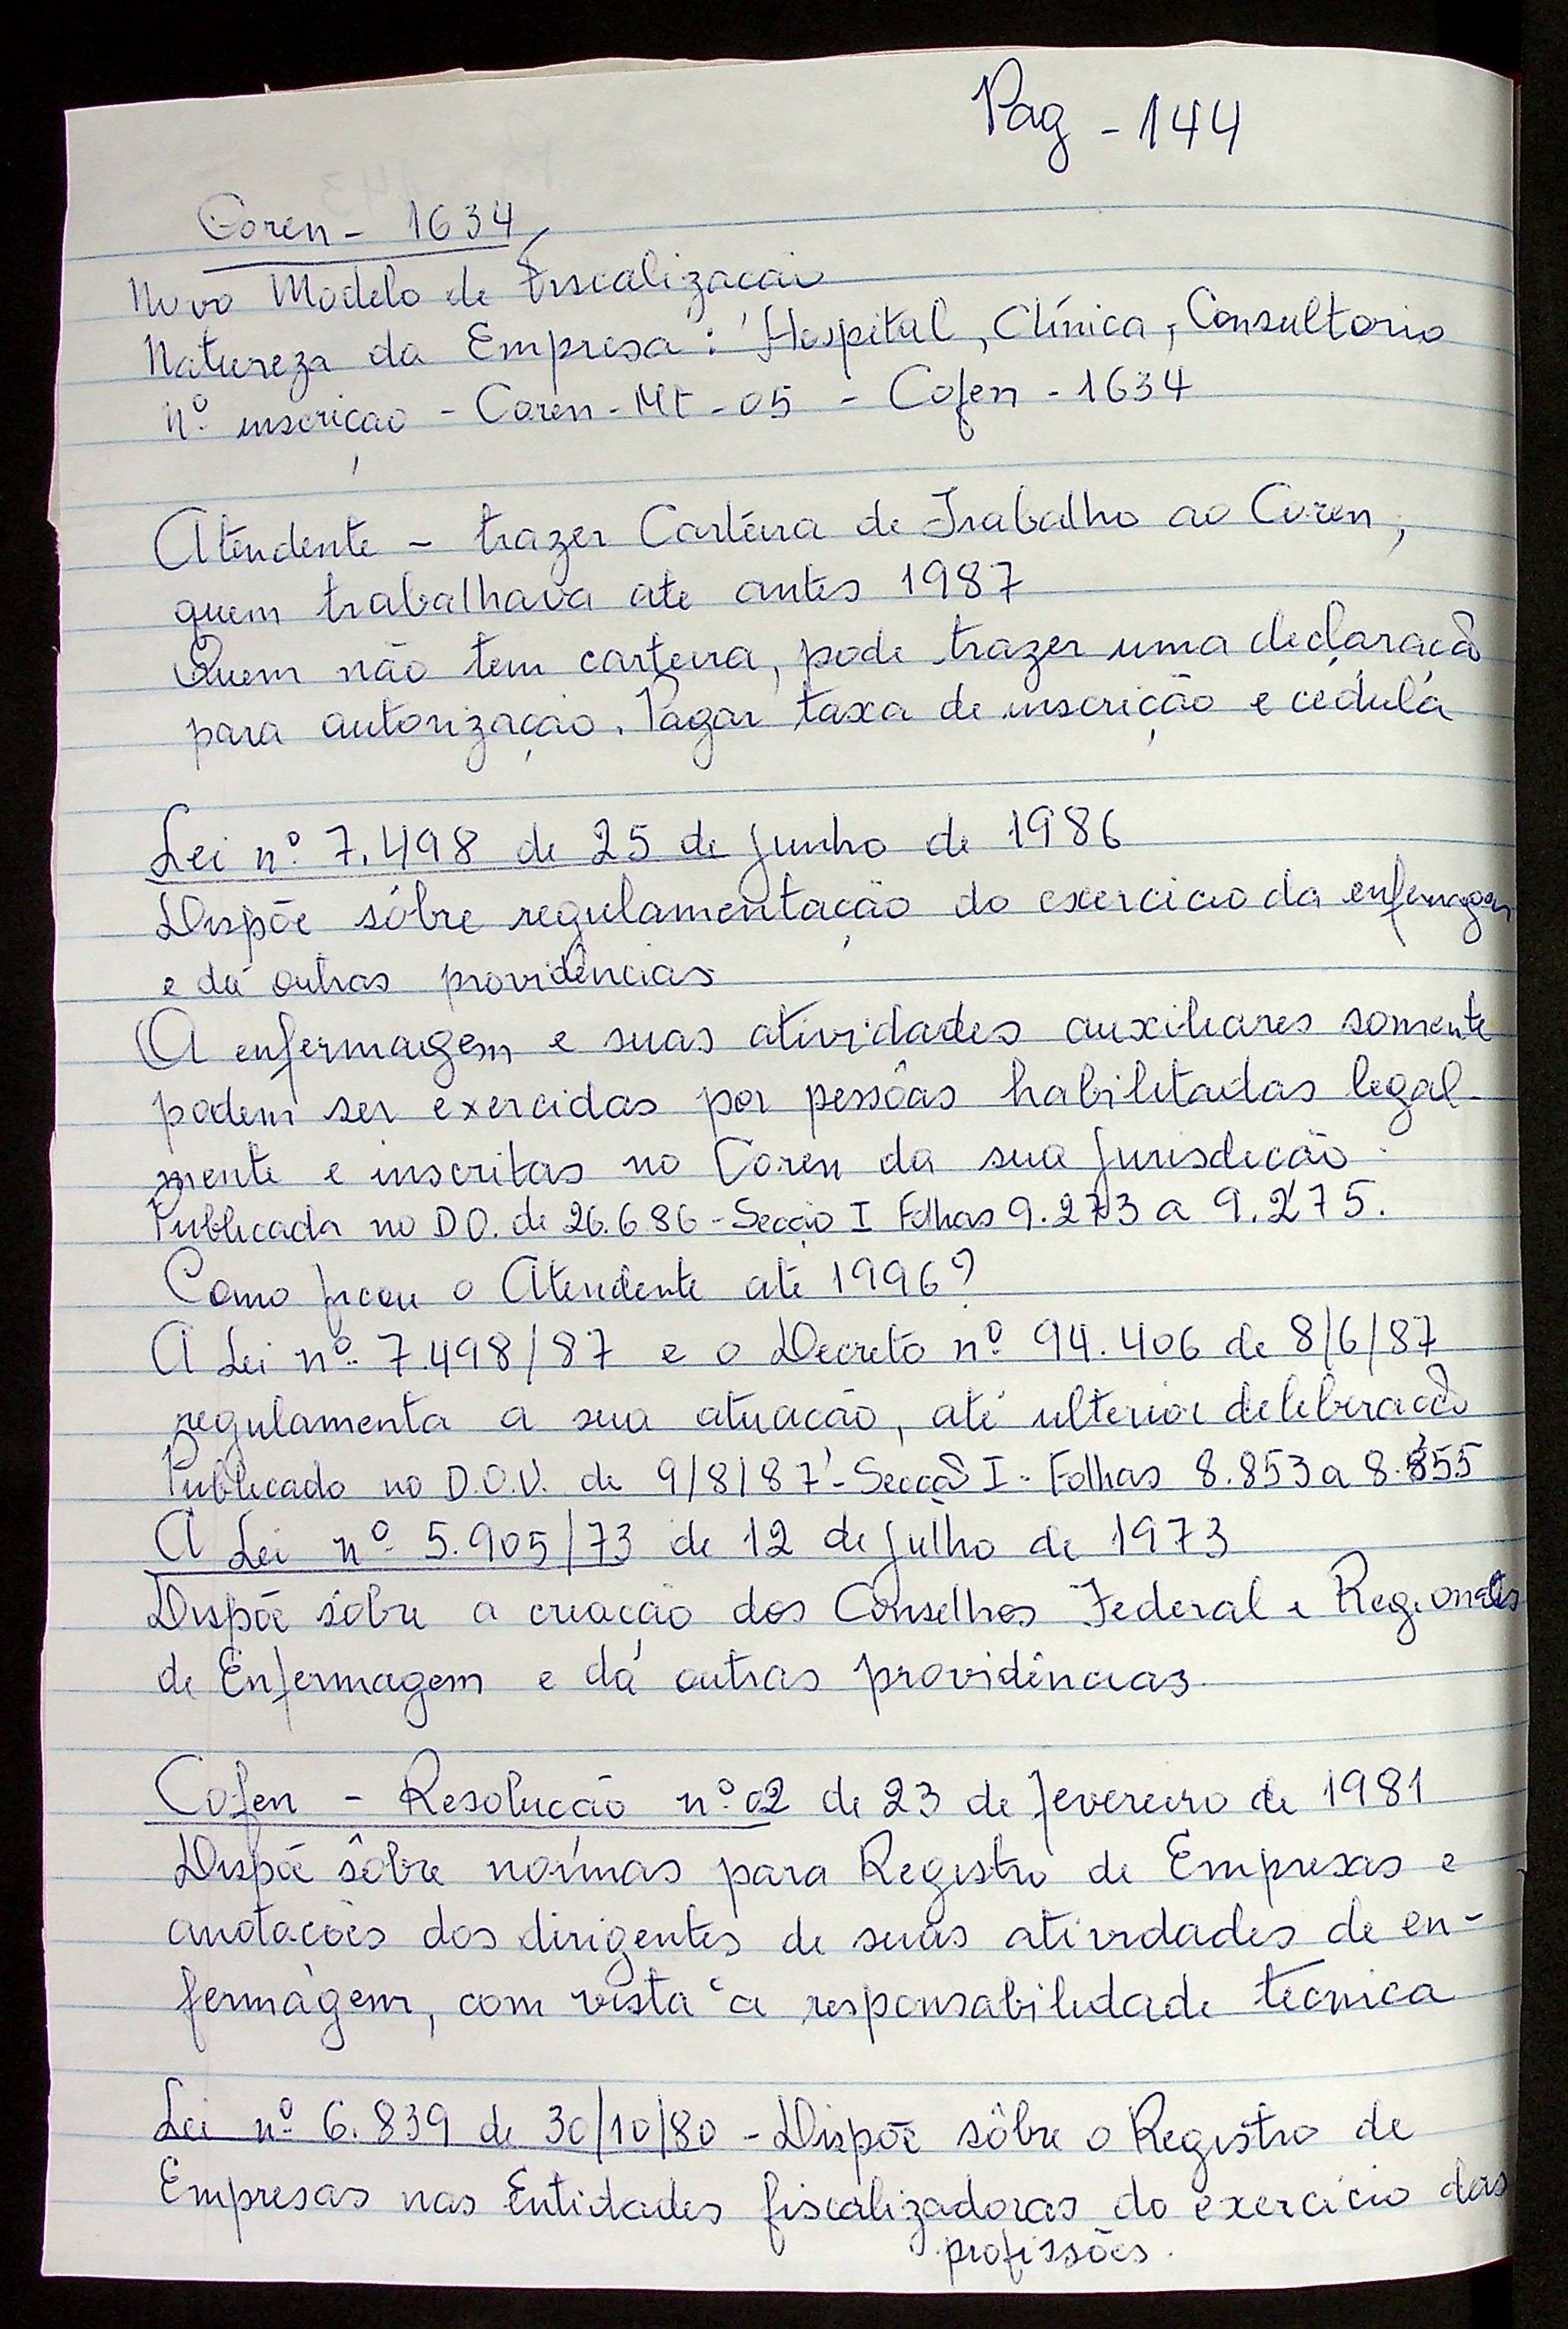 Pag - 144
Coren - 1634
Novo Modelo de Fiscalização
Natureza da Empresa: Hospital, Clínica, Consultorio
nº inscriçao - Coren - Mt - 05 - Cofen - 1634
Atendente - trazer Carteira de Trabalho ao Coren,
quem trabalhava ate antes 1987
Quem não tem carteira, pode trazer uma declaração
para autorizaçao. Pagar taxa de inscrição e cédula
Lei nº 7.498 de 25 de junho de 1986
Dispõe sôbre regulamentação do exercicio da enfermagem
e dá outras providências
A enfermagem e suas atividades auxiliares somente
podem ser exercidas por pessôas habilitadas legal-
mente e inscritas no Coren da sua Jurisdicão.
Publicada no D O. de 26.6.86 - Secção I Folhas 9.273 a 9.275.
Como ficou o Atendente até 1996?
A Lei nº 7.498/87 e o Decreto nº 94.406 de 8/6/87
regulamenta a sua atuacão, até ulterior deleberação
Publicado no D.O.U. de 9/8/87 - Secção I - Folhas 8.853 a 8.855
A Lei nº 5.905/73 de 12 de julho de 1973
Dispõe sôbre a criação dos Conselhos Federal e Regionais
de Enfermagem e dá outras providências.
Cofen - Resolucão nº 02 de 23 de fevereiro de 1981
Dispõe sôbre normas para Registro de Empresas e
anotacões dos dirigentes de suas atividades de en-
fermagem, com vista a responsabilidade tecnica
Lei nº 6.839 de 30/10/80 - Dispõe sôbre o Registro de
Empresas nas Entidades fiscalizadoras do exercicio das
profissões.